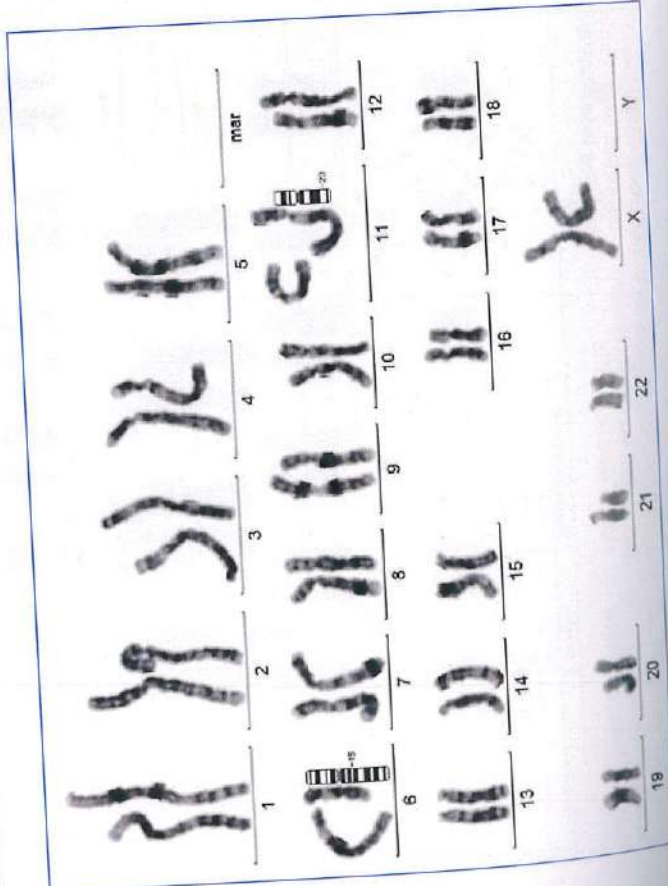 1 2 3 4 5 mar
-15 -23
6 7 8 9 10 11 12
13 14 15 16 17 18
19 20 21 22 X Y